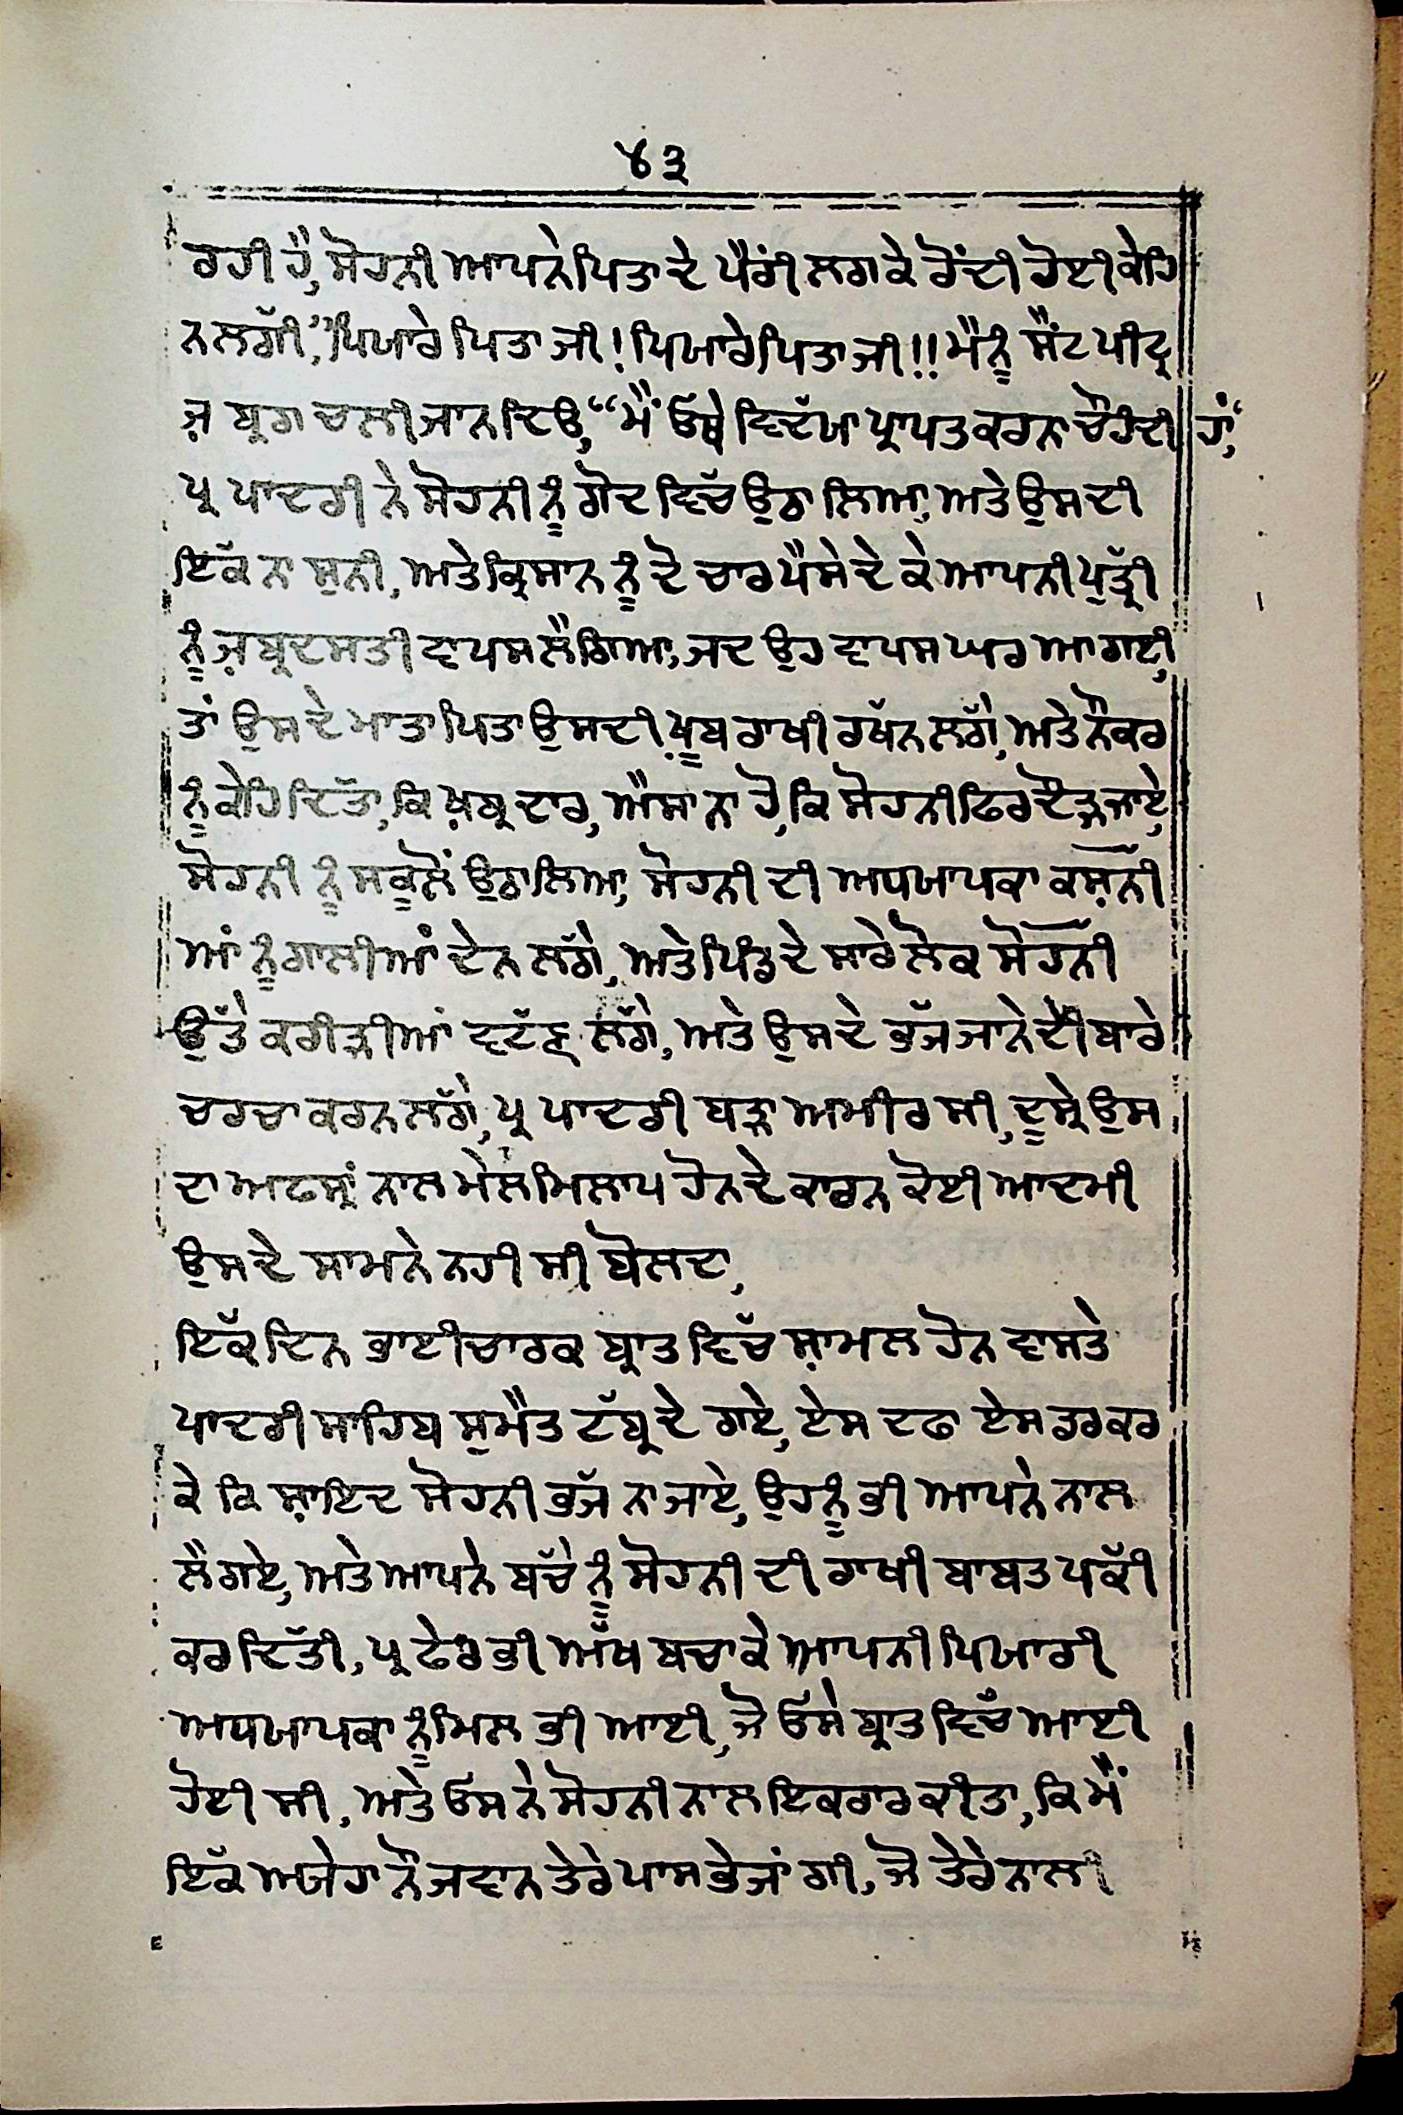 ੪੩
ਰਹੀ ਹੈ, ਸੋਹਨੀ ਆਪਨੇ ਪਿਤਾ ਦੇ ਪੈਰੀਂ ਲਗ ਕੇ ਰੋਂਦੀ ਹੋਈ ਕੇਹਿ
ਨ ਲਗੀ, "ਪਿਯਾਰੇ ਪਿਤਾ ਜੀ! ਪਿਯਾਰੇ ਪਿਤਾ ਜੀ!! ਮੈਨੂੰ ਸੈਂਟ ਪੀਟ੍ਰ
ਜ਼ ਬ੍ਰਗ ਚਲੀ ਜਾਨ ਦਿਓ, "ਮੈਂ ਓਥੇ ਵਿਦੱਯਾ ਪ੍ਰਾਪਤ ਕਰਨਾ ਚੌਹੰਦੀ ਹਾਂ,"
ਪ੍ਰ ਪਾਦਰੀ ਨੇ ਸੋਹਨੀ ਨੂੰ ਗੋਦ ਵਿਚੱ ਉਠਾ ਲਿਆ, ਅਤੇ ਉਸ ਦੀ
ਇਕੱ ਨਾ ਸੁਨੀ, ਅਤੇ ਕ੍ਰਿਸਾਨ ਨੂੰ ਦੋ ਚਾਰ ਪੈਸੇ ਦੇ ਕੇ ਆਪਨੀ ਪੁਤ੍ਰੱੀ
ਨੂੰ ਜ਼ਬ੍ਰਦਸਤੀ ਵਾਪਸ ਲੈ ਗਿਆ, ਜਦ ਉਹ ਵਾਪਸ ਘਰ ਆ ਗਈ,
ਤਾਂ ਉਸ ਦੇ ਮਾਤਾ ਪਿਤਾ ਉਸ ਦੀ ਖ਼ੂਬ ਰਾਖੀ ਰਖੱਨ ਲਗੇ, ਅਤੇ ਨੌਕਰ
ਨੂੰ ਕੇਹਿ ਦਿਤਾ, ਕਿ ਖ਼ਬ੍ਰਦਾਰ, ਐਸਾ ਨਾ ਹੋ, ਕਿ ਸੋਹਨੀ ਫਿਰ ਦੌੜ ਜਾਏ,
ਸੋਹਨੀ ਨੂੰ ਸਕੂਲੋਂ ਉਠਾ ਲਿਆ, ਸੋਹਨੀ ਦੀ ਅਧਯਾਪਕਾ ਕਸ਼ਨੀ
ਆਂ ਨੂੰ ਗਾਲੀਆਂ ਦੇਨ ਲਗੇ, ਅਤੇ ਪਿੰਡ ਦੇ ਸਾਰੇ ਲੋਕ ਸੋਹਨੀ
ਉਤੇ ਕਰੀੜੀਆਂ ਵਟੱਣ ਲਗੇ, ਅਤੇ ਉਸ ਦੇ ਭਜੱ ਜਾਨੇ ਦੀ ਬਾਰੇ
ਚਰਚਾ ਕਰਨ ਲਗੇ, ਪ੍ਰ ਪਾਦਰੀ ਬੜਾ ਅਮੀਰ ਸੀ, ਦੂਸ੍ਰੇ ਉਸ
ਦਾ ਅਫਸ੍ਰਾਂ ਨਾਲ ਮੇਲ ਮਿਲਾਪ ਹੋਨ ਦੇ ਕਾਰਨ ਕੋਈ ਆਦਮੀ
ਉਸ ਦੇ ਸਾਮਨੇ ਨਹੀ ਸੀ ਬੋਲਦਾ,
ਇਕੱ ਦਿਨ ਭਾਈਚਾਰਕ ਬ੍ਰਾਤ ਵਿਚੱ ਸ਼ਾਮਲ ਹੋਨ ਵਾਸਤੇ
ਪਾਦਰੀ ਸਾਹਿਬ ਸੁਮੈਤ ਟੱਬ੍ਰ ਦੇ ਗਏ, ਏਸ ਦਫਾ ਏਸ ਡਰ ਕਰ
ਕੇ ਕਿ ਸ਼ਾਇਦ ਸੋਹਨੀ ਭਜੱ ਨਾ ਜਾਏ, ਉਹਨੂੰ ਭੀ ਆਪਨੇ ਨਾਲ
ਲੈ ਗਏ, ਅਤੇ ਆਪਨੇ ਬਚੇੱ ਨੂੰ ਸੋਹਨੀ ਦੀ ਰਾਖੀ ਬਾਬਤ ਪਕੱੀ
ਕਰ ਦਿਤੱੀ, ਪ੍ਰ ਫੇਰ ਭੀ ਅੱਖ ਬਚਾ ਕੇ ਆਪਨੀ ਪਿਯਾਰੀ
ਅਧਯਾਪਕਾ ਨੂੰ ਮਿਲ ਭੀ ਆਈ, ਜੋ ਓਸੇ ਬ੍ਰਾਤ ਵਿਚੱ ਆਈ
ਹੋਈ ਸੀ, ਅਤੇ ਓਸ ਨੇ ਸੋਹਨੀ ਨਾਲ ਇਕਰਾਰ ਕੀਤਾ, ਕਿ ਮੈਂ
ਇਕੱ ਅਜੇਹਾ ਨੌਜਵਾਨ ਤੇਰੇ ਪਾਸ ਭੇਜਾਂ ਗੀ, ਜੋ ਤੇਰੇ ਨਾਲ